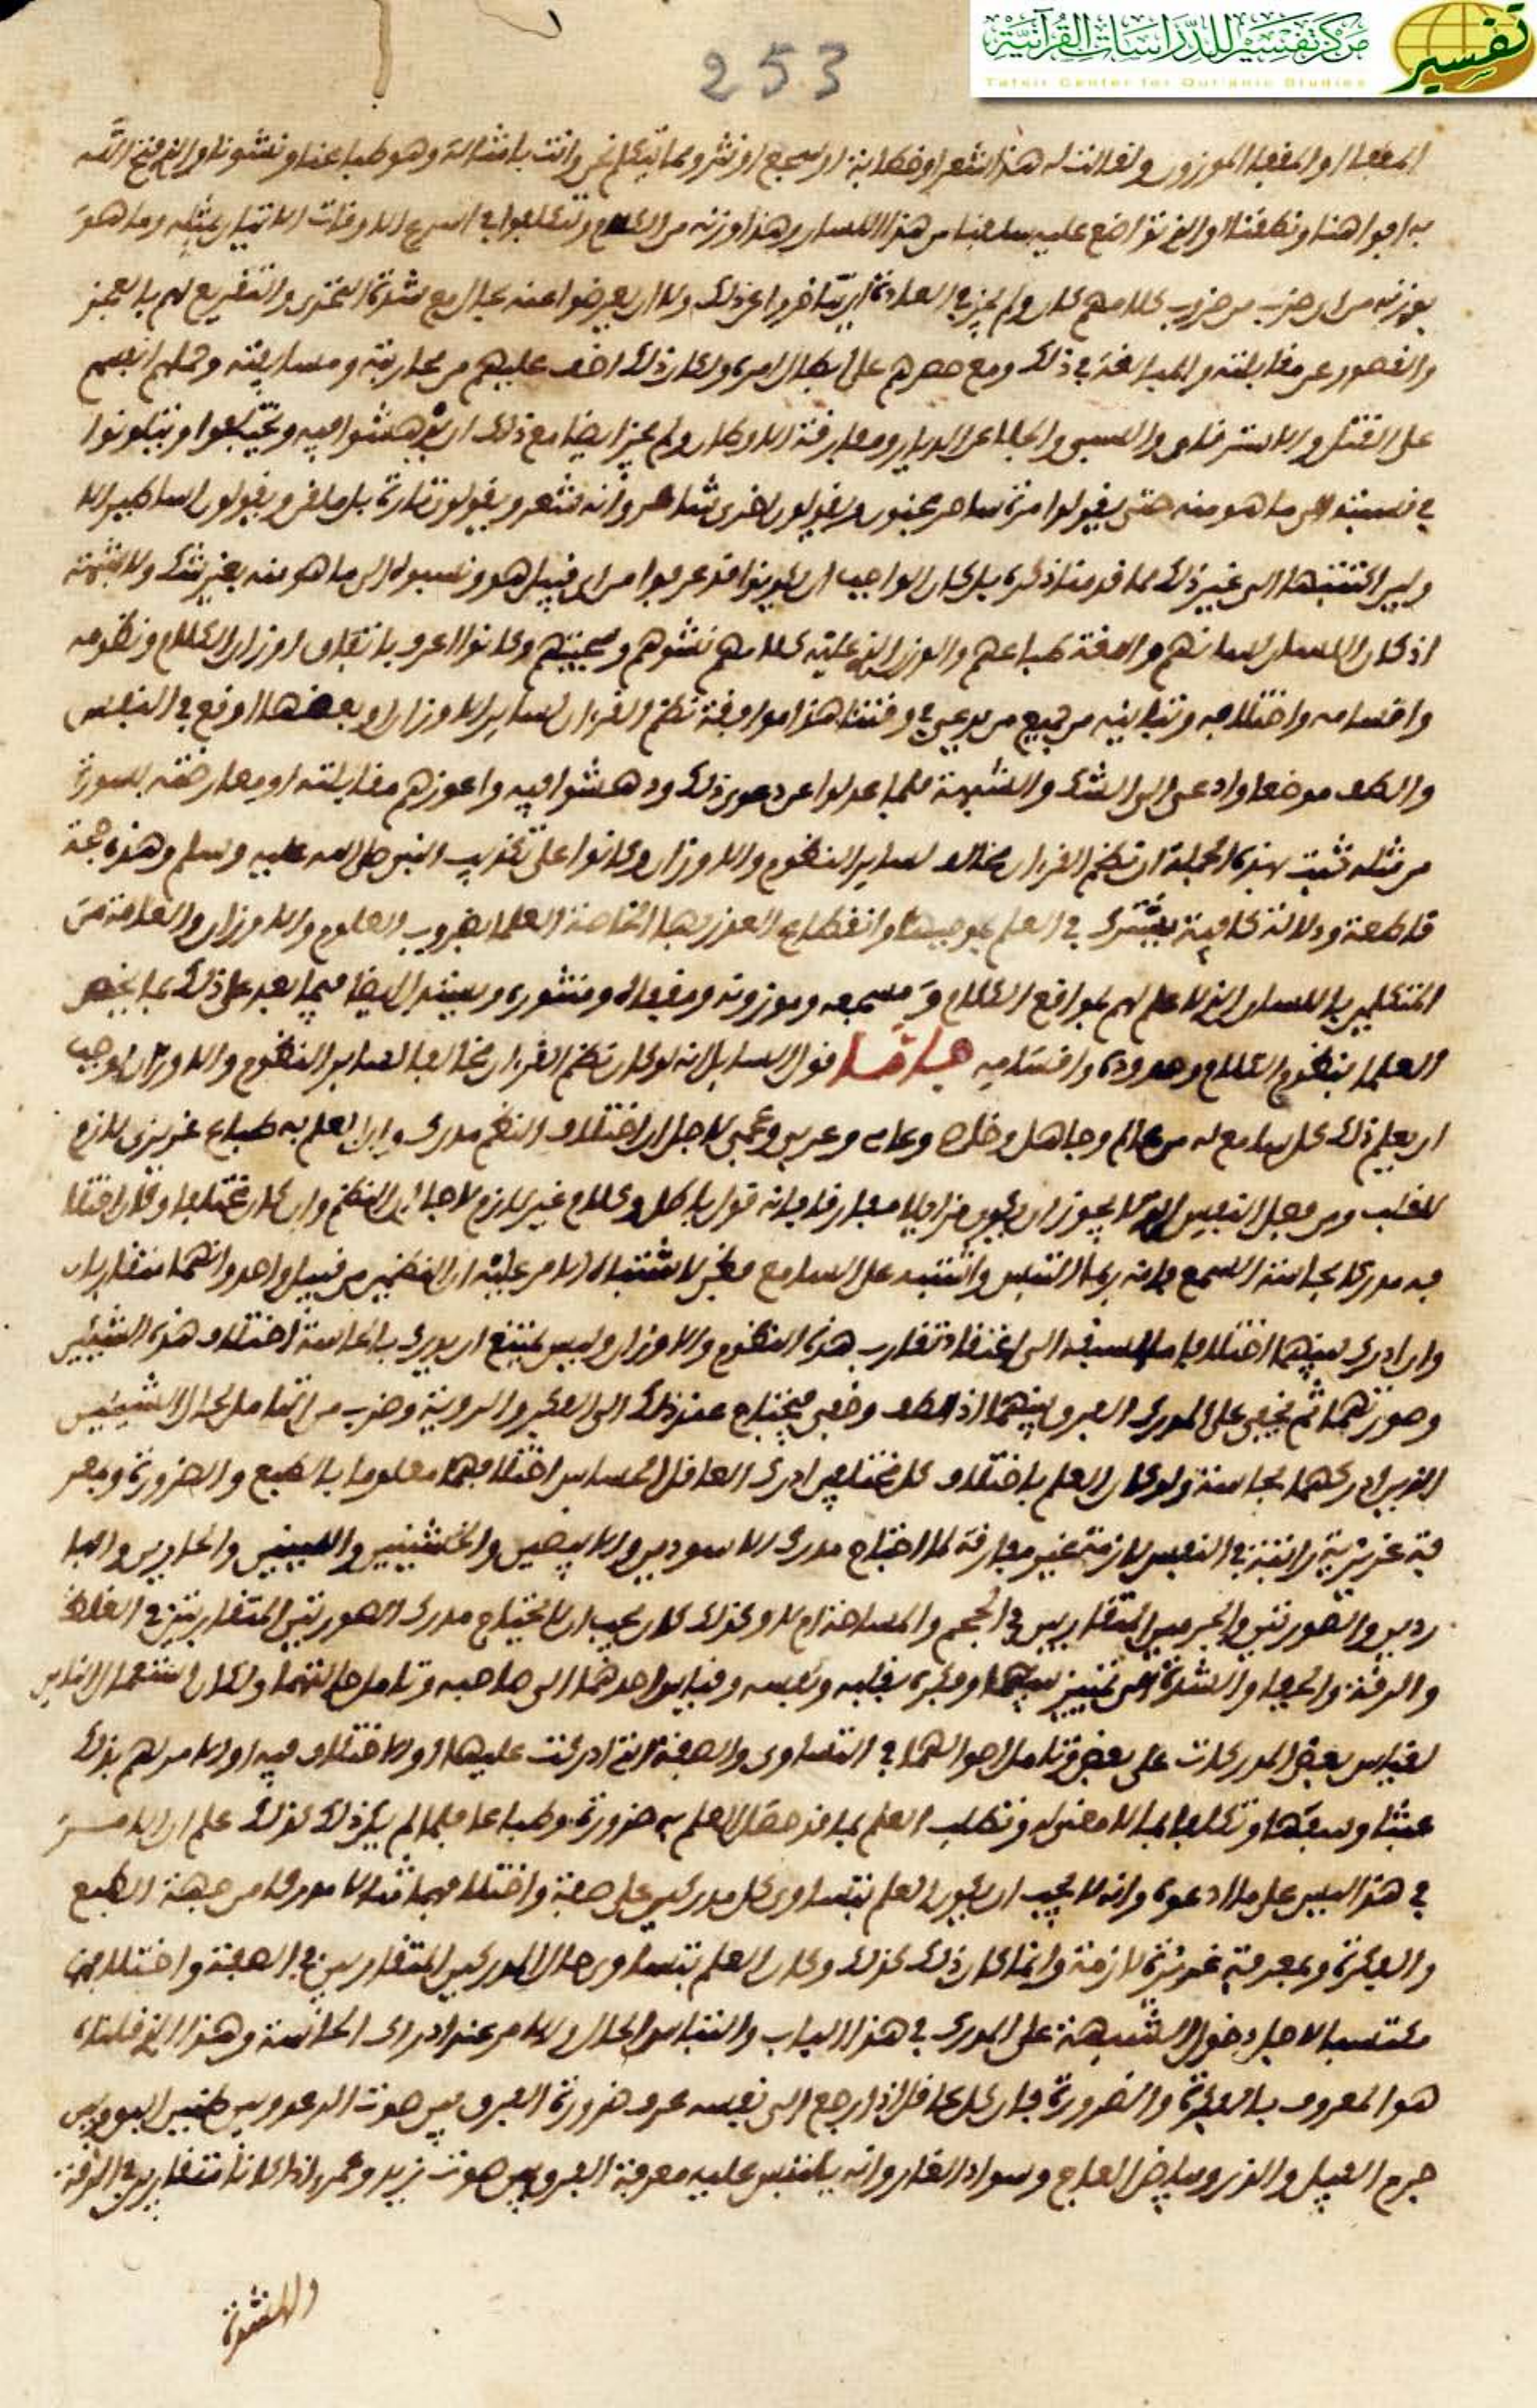 مركز تفسير للدراسات القرآنية
Tafsir Center for Qur'anic Studies
تفسير
253
المقفا او المقفا الموزون ولقالت له هذا الشعر او خطابة او سجع او نثر ومما نتكلم نحن وانت بامثاله وهو طباعنا ونشونا والذي فتح الله
به افواهنا ونطقنا
بوزنه من اي ضرب من ضروب كلامهم كان ولم يجز في العادة ان يتاخروا عن ذلك ولا ان يعرضوا عنه بحال مع شدة التحدي والتقريع لهم بالعجز
والقصور عن مقابلته والمبالغة في ذلك ومع حصرهم على ابطال امره ولكان ذلك اخف عليهم من محاربته ومسايفته وحملهم انفسهم
على القتل والاسترقاق والسبي والجلا عن الديار ومفارقة الاوطان ولم يجز ايضا مع ذلك ان يدهشوا فيه ويختلفوا ويتلونوا
في نسبته الى ما هو منه حتى يقولوا مرة ساحر مجنون ويقولون اخرى شاعر وانه شعر ويقولون تارة بل ملقن ويقولون اساطير الا
ولين اكتتبها الى غير ذلك مما قدمنا ذكره بل كان الواجب ان يكونوا قد عرفوا من اي قبيل هو ونسبوه الى ما هو منه بغير شك ولا شبهة
اذ كان اللسان لسانهم واللغة طباعهم والوزن الذي عليه كلامهم نشوهم وسجيتهم وكانوا اعرف باتفاق اوزان الكلام ونظومه
واقسامه واختلافه وتباينه من جميع من يدعي في وقتنا هذا موافقة نظم القران لساير الاوزان او بعضها اوقع في النفس
والطف موضعا وادعى الى الشك والشبهة فلما عدلوا عن دعوى ذلك ودهشوا فيه واعوزهم مقابلته او معارضته بسورة
من مثله ثبت بهذه الجملة ان نظم القران مخالف لساير النظوم والاوزان وكانوا على تكذيب النبي صلى الله عليه وسلم وهذه حجة
قاطعة ودلالة كافية يشترك في العلم بموجبها وانقطاع العذر بها الخاصة العلما بضروب العلوم والاوزان والعامة من
المتكلمين باللسان الذين لا علم لهم بمواقع الكلام و مسجعه وموزونه ومقفاه ومنثوره وسنبين ايضا فيما بعد على ذلك بما يخص
العلما بنظوم الكلام وحدوده واقسامه فاما قول السايل انه لو كان نظم القران مخالفا لساير النظوم والاوزان لوجب
ان يعلم ذلك كل سامع له من عالم وجاهل وخاص وعام وعربي وعجمي لاجل ان اختلاف النظم مدرك وان العلم به طباع غريزي لازم
للقلب ومن فعل النفس التي لا يجوز ان يكون مزايلا مفارقا فانه قول باطل وكلام غير لازم لاجل ان النظم وان كان مختلفا وكان اختلا
فه مدركا بحاسة السمع فانه ربما التبس واشتبه على السامع فظن لاشتباه الامر عليه ان النظمين من قبيل واحد وانهما متقاربان
وان ادرك بينهما اختلافا ما لسبقه الى اعتقاد تقارب هذه النظوم والاوزان وليس يمتنع ان يدرك بالحاسة اختلاف هذين الشيئين
وصورتهما ثم يخفى على المدرك الفرق بينهما اذا لطف وخفي فيحتاج عند ذلك الى الفكر والروية وضرب من التامل لحال الشيئين
الذين ادركهما بحاسة ولو كان العلم باختلاف كل مختلفين ادرك العاقل الحساس اختلافهما معلوما بالطبع والضرورة ومعر
فة غريزية راتبة في النفس لازمة غير مفارقة لما احتاج مدرك الاسودين والابيضين والخشنين واللينين والحارين والبا
ردين والصورتين والجرمين المتقاربين في الحجم والمساحة ام لا وكذلك كان يجب ان لا يحتاج مدرك الصورتين المتقاربتين في الغلظ
والرقة والجفا والشدة الى تمييز بينهما وفكره بقلبه ونفسه وقياس احدهما الى صاحبه وتامل حالتهما ولكان استعمال الناس
لقياس بعض المدركات على بعض وتامل احوالهما في التساوي والصفة التي ادركت عليها او الاختلاف فيه او الامر لهم بذلك
عبثا وسفها وتكلفا لما لا معنى له وتطلب العلم بما قد حصل العلم به ضرورة وطباعا فلما لم يكن ذلك كذلك علم ان الامر
في هذا ليس على ما ادعوه وانه لا يجب ان يكون العلم بتساوي كل مدركين على صفة واختلافهما ثابتا لا مدركا من جهة الطبع
والفكرة وبمعرفة غريزة لازمة وانما كان ذلك كذلك وكان العلم بتساوي حال المدركين المتقاربين في الصفة واختلافهما
مكتسبا لاجل دخول الشبهة على المدرك في هذا الباب والتباس الحال والامر عند ادراك الحاسة وهذا الذي قلناه
هو المعروف بالفكرة والضرورة فان كل عاقل اذا رجع الى نفسه عرف ضرورة الفرق بين صوت الرعد وبين طنين البق وبين
جرم الفيل والذر وبياض العاج وسواد القار وانه يلتبس عليه معرفة الفرق بين صوت زيد وعمر اذا كانا متقاربين في الرقة
والشدة